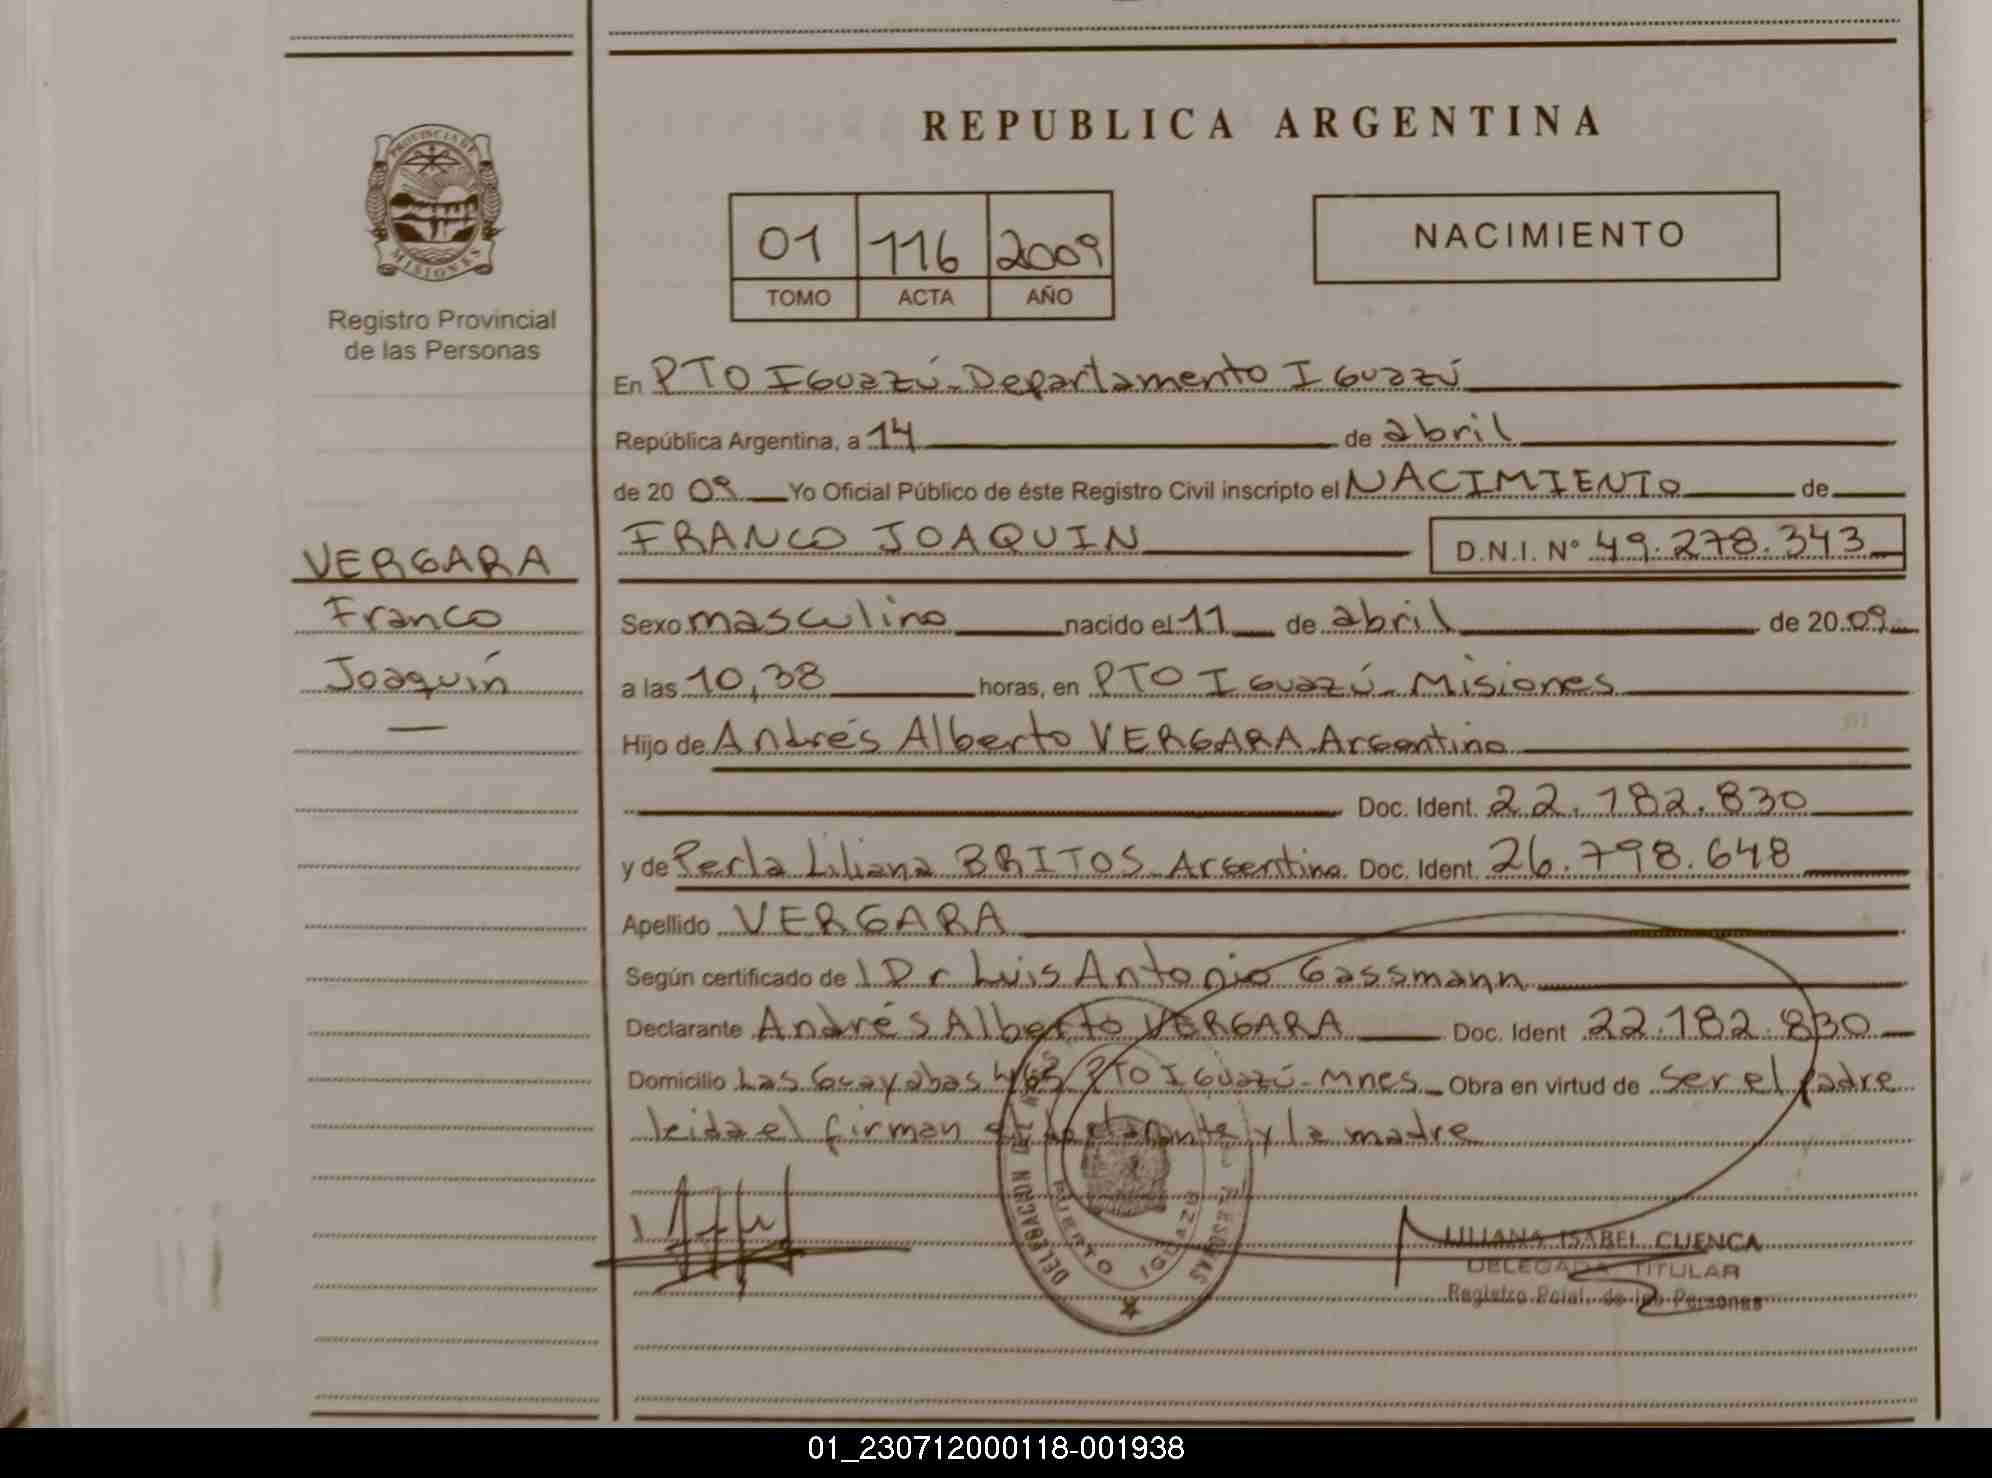 REPUBLICA ARGENTINA
PROVINCIA DE
MISIONES
Registro Provincial
de las Personas
01 116 2009
TOMO ACTA AÑO
NACIMIENTO
En PTO IGuazú - Departamento IGuazú
República Argentina, a 14 de abril
de 20 09 Yo Oficial Público de éste Registro Civil inscripto el NACIMIENTO de
FRANCO JOAQUIN D.N.I. N° 49.278.343
VERGARA
Franco
Joaquín
Sexo masculino nacido el 11 de abril de 20 09
a las 10,38 horas, en PTO IGuazú - Misiones
Hijo de Andrés Alberto VERGARA Argentino
Doc. Ident. 22.182.830
y de Perla Liliana BRITOS - Argentina Doc. Ident. 26.798.648
Apellido VERGARA
Según certificado de l Dr Luis Antonio Gassmann
Declarante Andrés Alberto VERGARA Doc. Ident 22.182.830
Domicilio Las Guayabas PTO IGuazú - Mnes Obra en virtud de ser el padre
leida el firman y la madre
DELEGACION
PUERTO IGUAZU
LILIANA ISABEL CUENCA
DELEGADA TITULAR
Registro Pcial. de las Personas
01_230712000118-001938